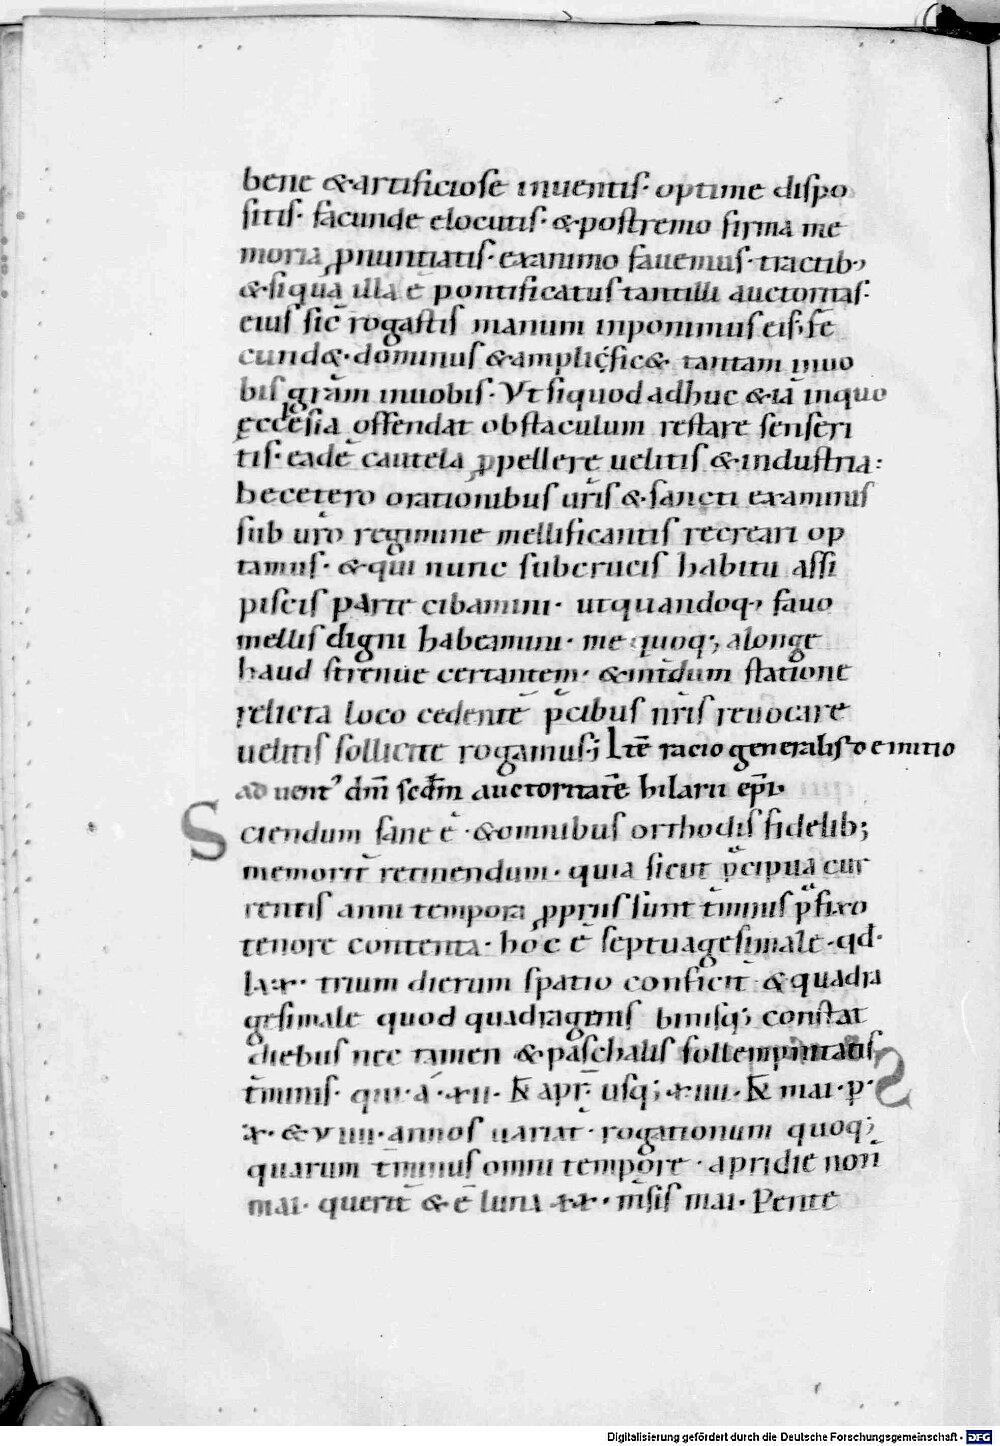 bene &artificiose inuentis· optime dispo
sitis· facunde elocutis· &postremo firma me
moria ꝓnuntiatis· exanimo fauemus· tractib;
&siqua illa ē pontificatus tantilli auctoritas·
eius sic̄ rogastis manum inponimus eis· fe
cund&· dominus &amplificet tantam inuo
bis gr̄am inuobis· Vt siquod adhuc &iā inquo
ęcclesia offendat obstaculum restare senseri
tis· eadē cautela ꝓpellere uelitis &industria:
hecetero orationibus ur̄is &sancti examinis
sub ur̄o regimine mellificantis recreari op
tamus· &qui nunc subcrucis habitu assi
piscis parte cibamini· utquandoq; fauo
mellis digni habeamini· me quoq; alonge
haud strenue certantem· &int̄dum statione
relicta loco cedentē p̄cibus nr̄is reuocare
uelitis sollicite rogamus; Itē racio generalis de initio
ad uent' dm̄ scd̄m auctoritatē hilarii ep̄i·
Sciendum sane ē· &omnibus orthodis fidelib;
memorit̄ retinendum· quia sicut p̄cipua cur
rentis anni tempora ꝓpriis sunt t̄minis p̄fixo
tenore contenta· hoc ē septuagesimale· qd·
lxx· trium dierum spatio conficit̄ &quadra
gesimale quod quadragenis binisq; constat
diebus nec tamen &paschalis sollempnitatis
t̄minis· qui· a· xii· kl apr̄· usq; xiiii· kl mai· p·
x· &viiii· annos uariat̄· rogationum quoq;
quarum t̄minus omni tempore· apridie non̄
mai· querit̄ &ē luna xx· m̄sis mai· Pente
Digitalisierung gefördert durch die Deutsche Forschungsgemeinschaft - DFG